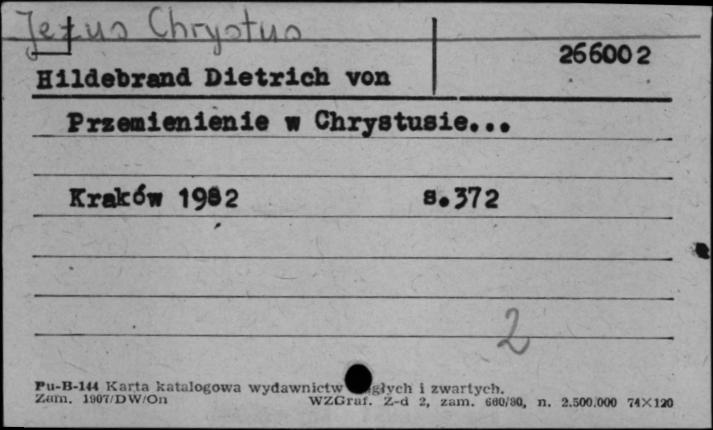 Jezus Chrystus
266002
Hildebrand Dietrich von
Przemienienie w Chrystusie...
Kraków 1982 s.372
2
Pu-B-144 Karta katalogowa wydawnictw głych i zwartych.
Zam. 1907/DW/On WZGraf. Z-d 2, zam. 660/80, n. 2.500.000 74×120